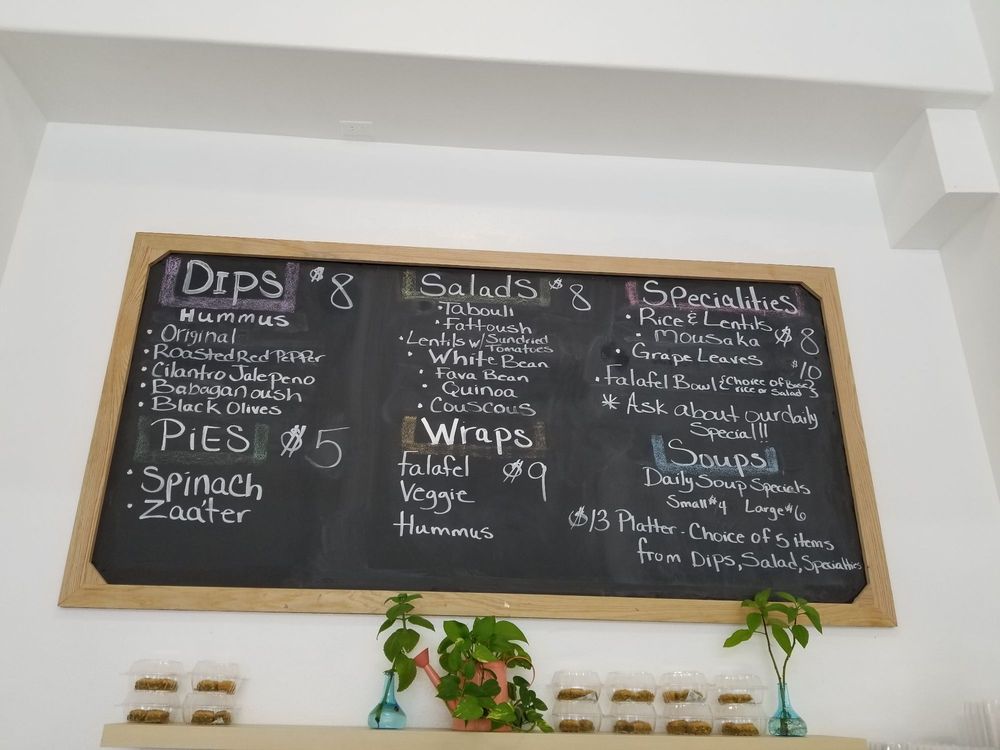 Dips $8
Hummus
• Original
• Roasted Red Pepper
• Cilantro Jalepeno
• Babaganoush
• Black Olives
PiES $5
• Spinach
• Zaa'ter
Salads $8
• Tabouli
• Fattoush
• Lentils w/ Sundried
Tomatoes
• White Bean
• Fava Bean
• Quinoa
• Couscous
Wraps
falafel $9
Veggie
Hummus
Specialities
• Rice & Lentils
• Mousaka $8
• Grape Leaves
$10
• Falafel Bowl {Choice of Base}
rice or Salad
* Ask about our daily
Special!!
Soups
Daily Soup Specials
Small $4 Large $6
$13 Platter - Choice of 5 items
from Dips, Salad, Specialties